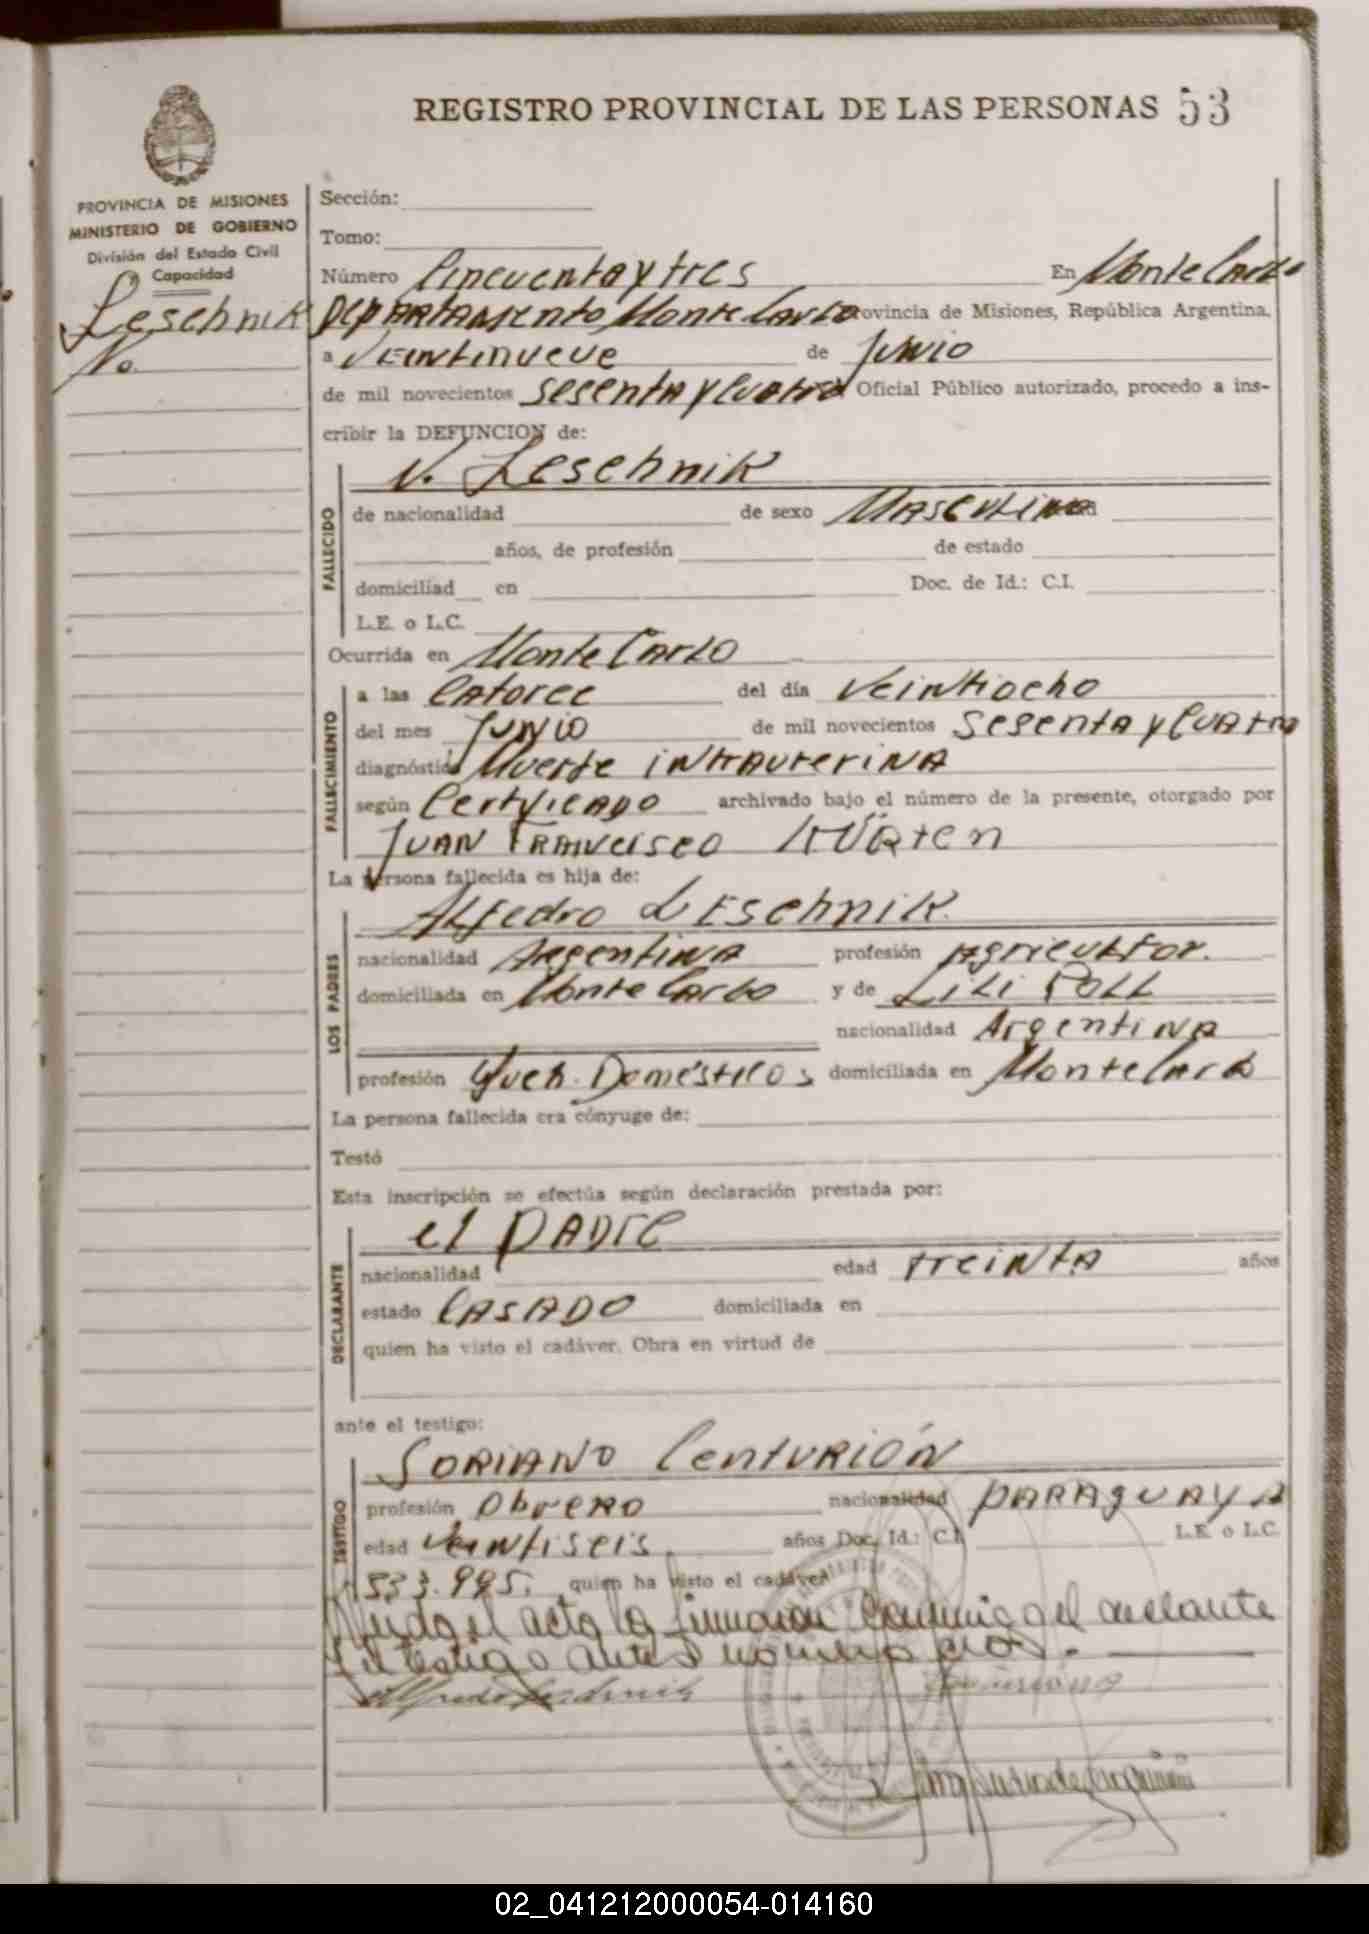 REGISTRO PROVINCIAL DE LAS PERSONAS 53
PROVINCIA DE MISIONES
MINISTERIO DE GOBIERNO
División del Estado Civil
Capacidad
Leschnik
N.
Sección:
Tomo:
Número Cincuenta y tres En Monte Carlo
Departamento Monte Carlo Provincia de Misiones, República Argentina,
a Veintinueve de Junio
de mil novecientos sesenta y Cuatro Oficial Público autorizado, procedo a ins-
cribir la DEFUNCION de:
N. Leschnik
FALLECIDO
de nacionalidad de sexo Masculino
años, de profesión de estado
domiciliad en Doc. de Id.: C.I.
L.E. o L.C.
Ocurrida en Monte Carlo
FALLECIMIENTO
a las Catorce del día Veintiocho
del mes Junio de mil novecientos sesenta y Cuatro
diagnóstico Muerte intrauterina
según Certificado archivado bajo el número de la presente, otorgado por
Juan Francisco Kürten
La persona fallecida es hija de:
LOS PADRES
Alfedro Leschnik
nacionalidad Argentina profesión Agricultor.
domiciliada en Monte Carlo y de Lili Poll
nacionalidad Argentina
profesión Queh. Domésticos domiciliada en Monte Carlo
La persona fallecida era cónyuge de:
Testó
Esta inscripción se efectúa según declaración prestada por:
DECLARANTE
el Padre
nacionalidad edad treinta años
estado Casado domiciliada en
quien ha visto el cadáver. Obra en virtud de
ante el testigo:
TESTIGO
Soriano Centurión
profesión Obrero nacionalidad paraguaya
edad Veintiseis. años Doc. Id.: C.I. L.E. o L.C.
533.995. quien ha visto el cadáver
el acto la firmaron conmigo el declarante
y el testigo antes nombrados.
Alfredo Leschnik
02_041212000054-014160